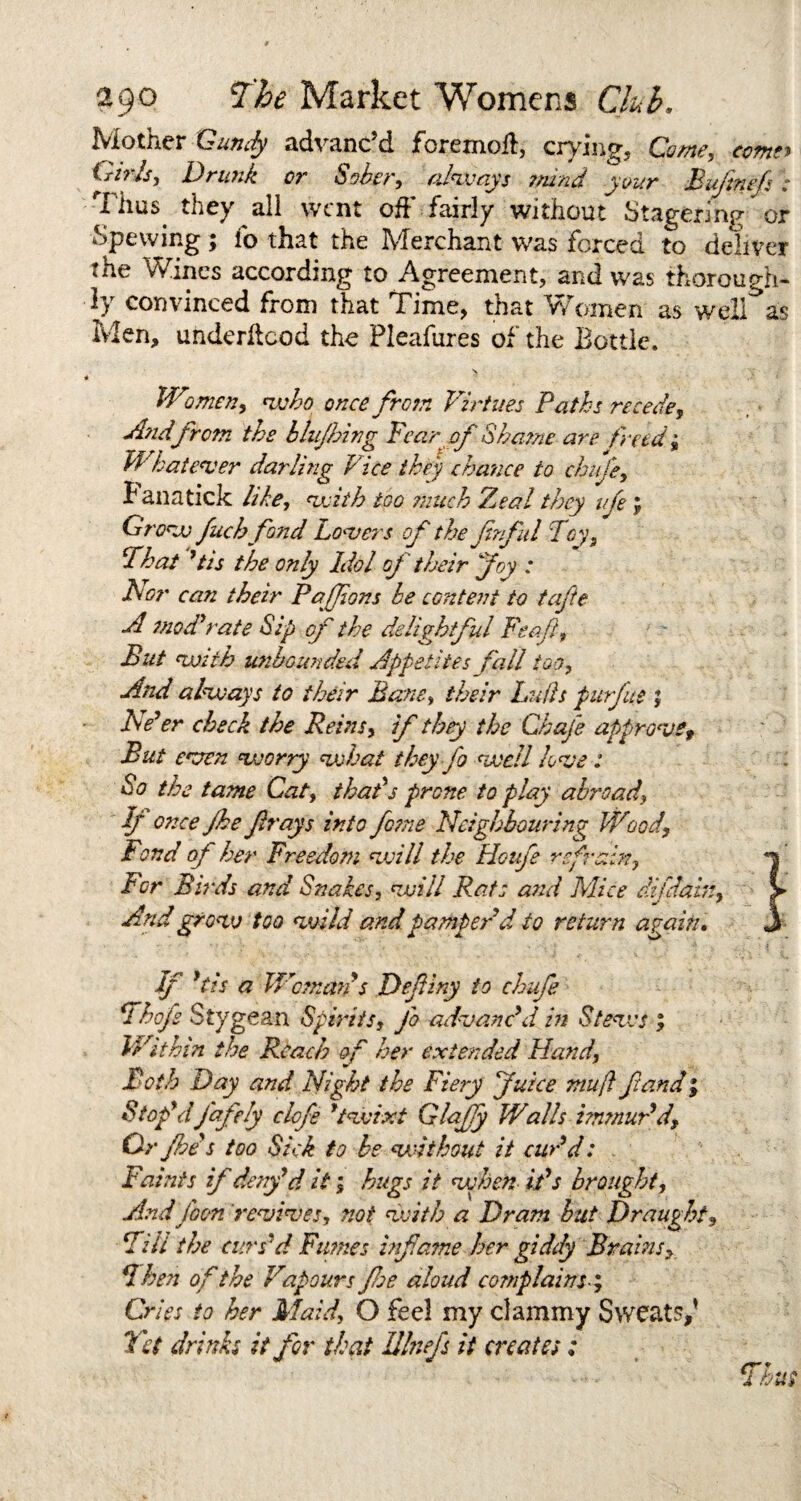 290 The Market Womens Club.
Mother Gundy advanc'd foremoſt, crying, Come, come,
Girls, Drunk or Sober, always mind your Buſineſs:
Thus they all went off fairly without Stagering or
Spewing; ſo that the Merchant was forced to deliver
the Wines according to Agreement, and was thorough-
ly convinced from that Time, that Women as well as
Men, underſtood the Pleaſures of the Bottle.
Women, who once from Virtues Paths recede,
And from the bluſhing Fear of Shame are freed;
Whatever darling Vice they chance to chuſe,
Fanatick like, with too much Zeal they uſe;
Grow ſuch fond Lovers of the ſinful Toy,
That 'tis the only Idol of their Joy:
Nor can their Paſſions be content to taſte
A mod'rate Sip of the delightful Feaſt,
But with unbounded Appetites fall too,
And always to their Bane, their Luſts purſue;
Ne'er check the Reins, if they the Chaſe approve,
But even worry what they ſo well love:
So the tame Cat, that's prone to play abroad,
If once ſhe ſtrays into ſome Neighbouring Wood,
Fond of her Freedom will the Houſe refrain,
For Birds and Snakes, will Rats and Mice diſdain,
And grow too wild and pamper'd to return again.
If 'tis a Woman's Deſtiny to chuſe
Thoſe Stygean Spirits, ſo advanc'd in Stews;
Within the Reach of her extended Hand,
Both Day and Night the Fiery Juice muſt ſtand;
Stop'd ſafely cloſe 'twixt Glaſſy Walls immur'd,
Or ſhe's too Sick to be without it cur'd:
Faints if deny'd it; hugs it when it's brought,
And ſoon revives, not with a Dram but Draught,
Till the curs'd Fumes inflame her giddy Brains,
Then of the Vapours ſhe aloud complains;
Cries to her Maid, O feel my clammy Sweats,'
Yet drinks it for that Illneſs it creates:
Thus